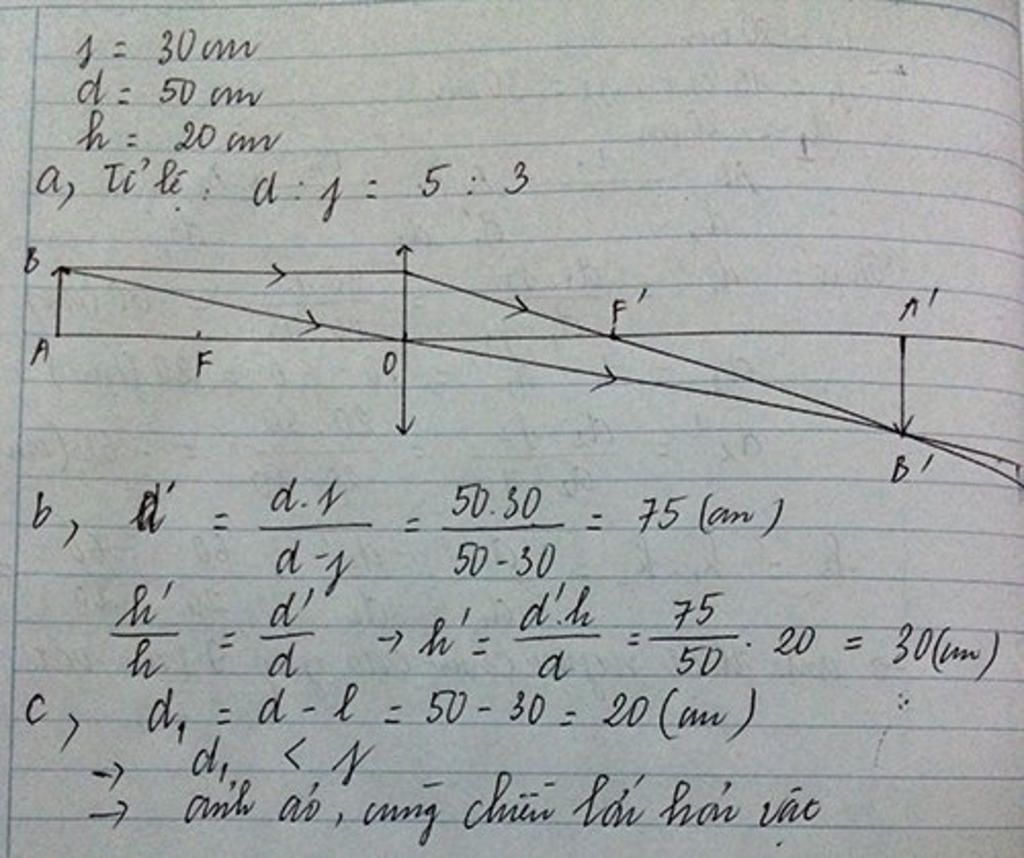 f = 30 cm
d = 50 cm
h = 20 cm
a, Tỉ lệ : d : f = 5 : 3
B
A F O F' A'
B'
b, d' = d.f / d-f = 50.30 / 50-30 = 75 (cm)
h'/h = d'/d → h' = d'.h / d = 75/50 . 20 = 30 (cm)
c, d₁ = d - l = 50 - 30 = 20 (cm)
→ d₁ < f
→ ảnh ảo, cùng chiều lớn hơn vật